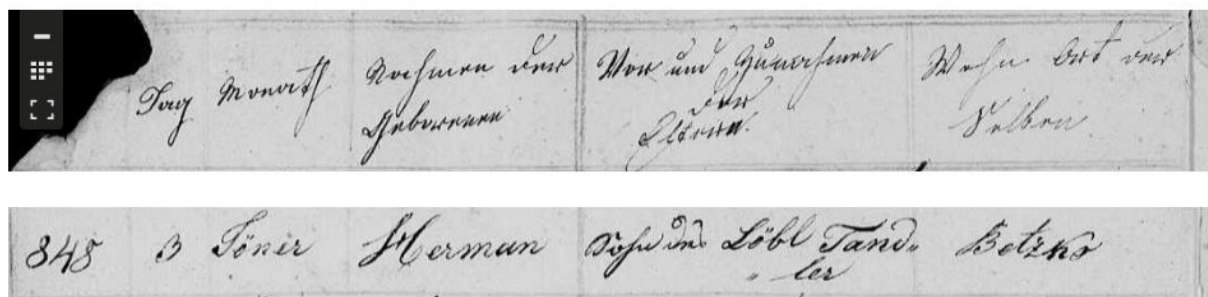 Tag Monath Nachmen der Geborenen Vor und Zunahmen der Eltern. Wohn Ort der Selben
848 3 Herman Sohn des Löbl Tand-
ler Betzko